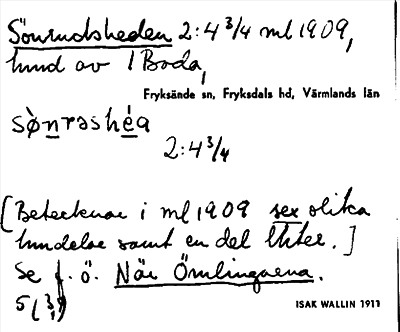 Sönrudsheden 2:4 3/4 ml 1909,
hmd av 1 Boda,
Fryksände sn, Fryksdals hd, Värmlands län
sø̀nrəshéa
2:4 3/4
[Betecknar i ml 1909 sex olika
hmdelar samt en del
Se f. ö. När Ömlingarna.
ISAK WALLIN 1911